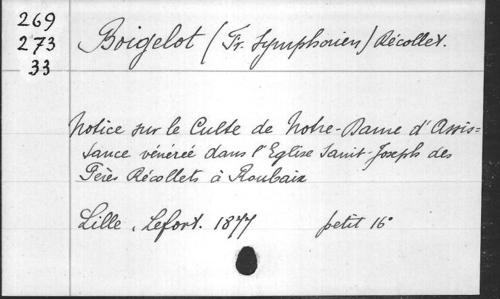 269
273
33
Boigelot (Fr. Symphorien) Récollet.
Notice sur le Culte de Notre-Dame d'Assis=
tance vénérée dans l'Eglise Saint-Joseph des
Pères Récollets à Roubaix
Lille, Lefort. 1877 petit 16°